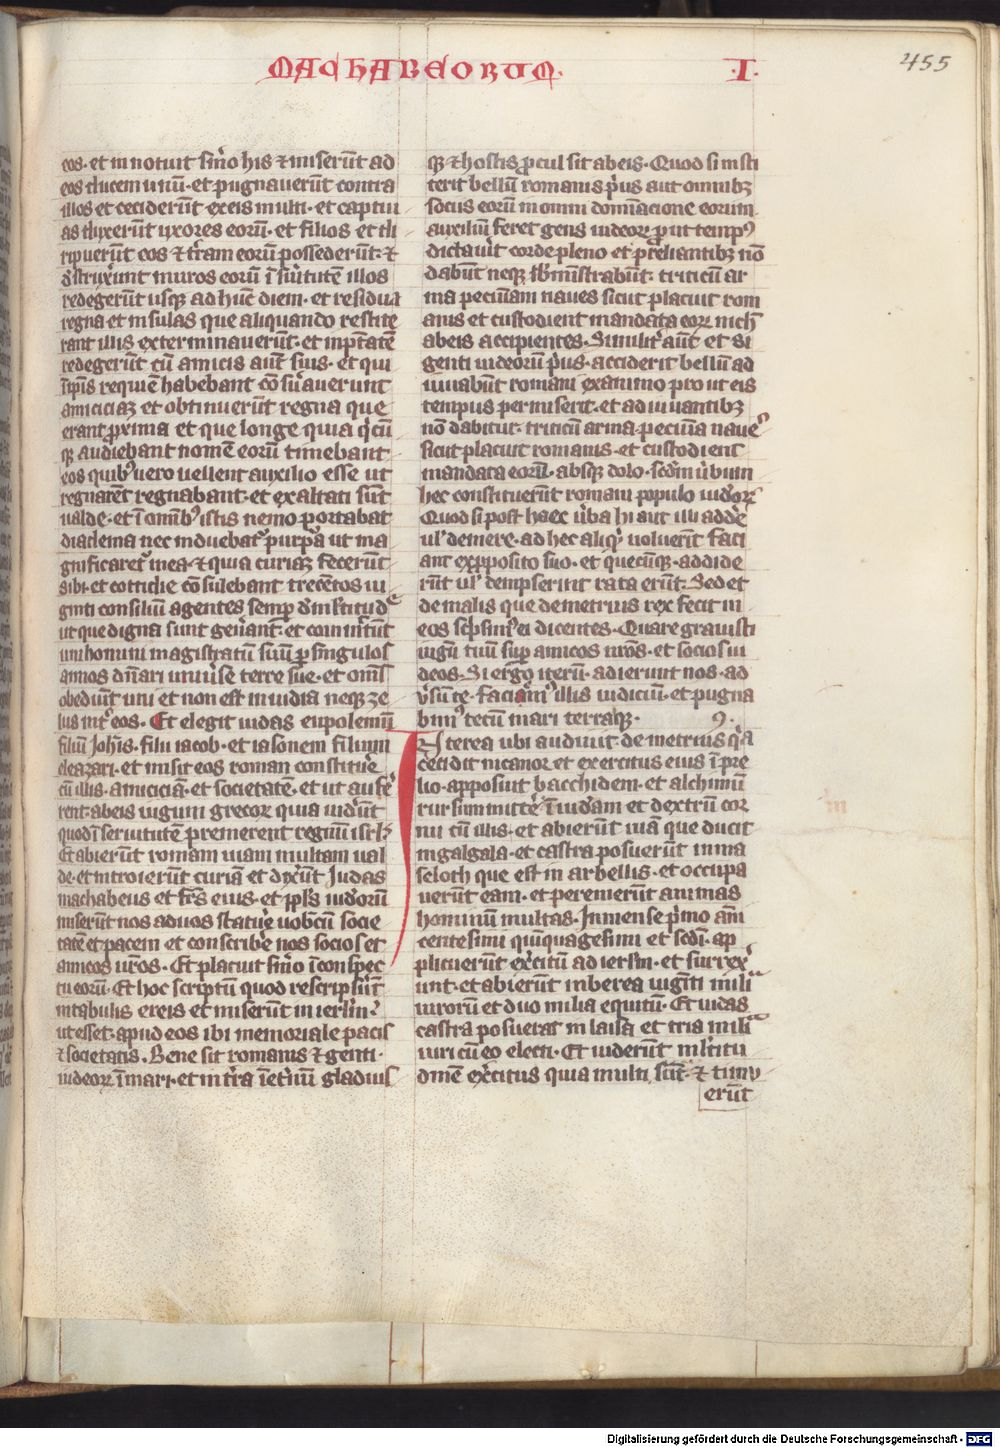 MACHABEORUM
·I·
455
eos· et in notuit sm̄o his ⁊ miserūt ad
eos ducem unū· et pugnauerūt contra
illos et ceciderūt ex eis multi· et captiu
as duxerūt uxores eorū· et filios et di
ripuerūt eos ⁊ tr̄am eorū possederūt· ⁊
dstruxr̄unt muros eorū ī sr̄uitutē illos
redegerūt usqꝫ ad hūc diem· et residua
regna et insulas que aliquando restite
rant illis exterminauerūt· et inptatē
redegerūt cū amicis aūt suis· et qui
ī ipīs requiē habebant cōsr̄uauerunt
amiciciaꝫ et obtinuerūt regna que
erant proxima et que longe quia q̄cū
qꝫ audiebant nomē eorū timebant
eos quibꝰ uero uellent auxilio esse ut
regnarēt regnabant· et exaltati sūt
ualde· et ī omībꝰ istis nemo portabat
diadema nec induebat᷑ purp̄a ut ma
gnificaret᷑ in ea· ⁊ quia curiaꝫ fecerūt
sibi· et cottidie cōsulebant trecētos ui
ginti consiliū agentes semꝑ d mltitudē
ut que digna sunt gerant· et committūt
uni homini magistratū suū ꝑ singulos
annos dn̄ari uniuse terre sue· et om̄s
obediūt uni et non est inuidia neqꝫ ze
lus int᷑ eos. Et elegit iudas eupolemū
filiū Joh̄is· filii iacob· et iasonem filium
eleazari· et misit eos romam constitue
cū illis· amiciciā et societatē· et ut aufer
rent ab eis iugum grecoꝝ quia uiderūt
quod ī seruitutē premerent regnū isrl·
Et abierūt romam uiam multam ual
de· et introierūt curiā et dixerūt Judas
machabeus et fr̄s eius· et ppl̄s iudeorū
miserūt nos ad uos statuere uobcū socie
tatē et pacem et conscribere nos socios et
amicos ur̄os· Et placuit sm̄o ī conspec
tu eorū· Et hoc scriptū quod rescripserūt
in tabulis ereis et miserūt in ierlm̄·
ut esset· apud eos ibi memoriale pacis
⁊ societatis. Bene sit romanis ⁊ genti·
iudeoꝝ ī mari· et in tr̄a ī eternū gladius
qꝫ ⁊ hostis procul sit ab eis· Quod si insti
terit bellū romanis pr̄us aut omnibꝫ
sociis eorū in omni dominacione eorum
auxiliū feret gens iudeoꝝ prout tempꝰ
dictauerit corde pleno et preliantibꝫ nō
dabūt neqꝫ sb̄ministrabūt· triticū ar
ma pecuniam naues sicut placuit rom
anis et custodient mandata eoꝝ nich̄
ab eis accipientes· Similit᷑ aūt et si
genti iudeorū prius· acciderit bellū ad
iuuabūt romani ex animo pro ut eis
tempus permiserit· et adiuuantibꝫ
nō dabitur· triticū arma· pecunia naues
sicut placuit romanis· et custodient
mandata eorū· absqꝫ dolo· sc̄dm ūbum
hec constituerūt romani populo iudeoꝝ
Quod si post haec ūba hi aut illi addere
ul demere· ad hec aliqd uoluerīt faci
ant expposito suo· et quecūqꝫ· addide
rūt ul dempserint rata erūt· Sed et
de malis que demetrius rex fecit in
eos scpsimꝰ ei dicentes· Quare grauasti
iugū tuū suꝑ amicos nr̄os· et socios iu
deos· Si ergo iterū· adierunt nos· ad
ūsū te· faciamꝰ illis iudiciū· et pugna
bimꝰ tecū mari terraqꝫ· 9·
Interea ubi audiuit· demetrius qa
cecidit nicanor et exercitus eius ī pre
lio· apposuit bacchidem· et alchimū
rursum mittere ī iudam et dextrū cor
nu cū illis· et abierūt uiā que ducit
in galgala· et castra posuerūt in ma
seloth que est in arbellis· et occupa
uerūt eam· et peremerūt animas
hominū multas· In mense pr̄mo ann̄i
centesimi quīquagesimi et sc̄di· ap
plicuerūt exercitū ad ierlm̄· et surrex
unt· et abierūt in berea uigīti mili
uirorū et duo milia equitū· Et iudas
castra posuerat in laisa et tria mili
uiri cū eo electi· Et uiderūt ml̄titu
dinē exercitus quia multi sūt· ⁊ timu
erūt
Digitalisierung gefördert durch die Deutsche Forschungsgemeinschaft - DFG